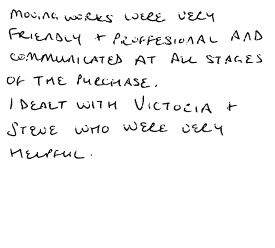 MOVING WORKS WERE VERY
FRIENDLY + PROFFESIONAL AND
COMMUNICATED AT ALL STAGES
OF THE PURCHASE.
I DEALT WITH VICTORIA +
STEVE WHO WERE VERY
HELPFUL.